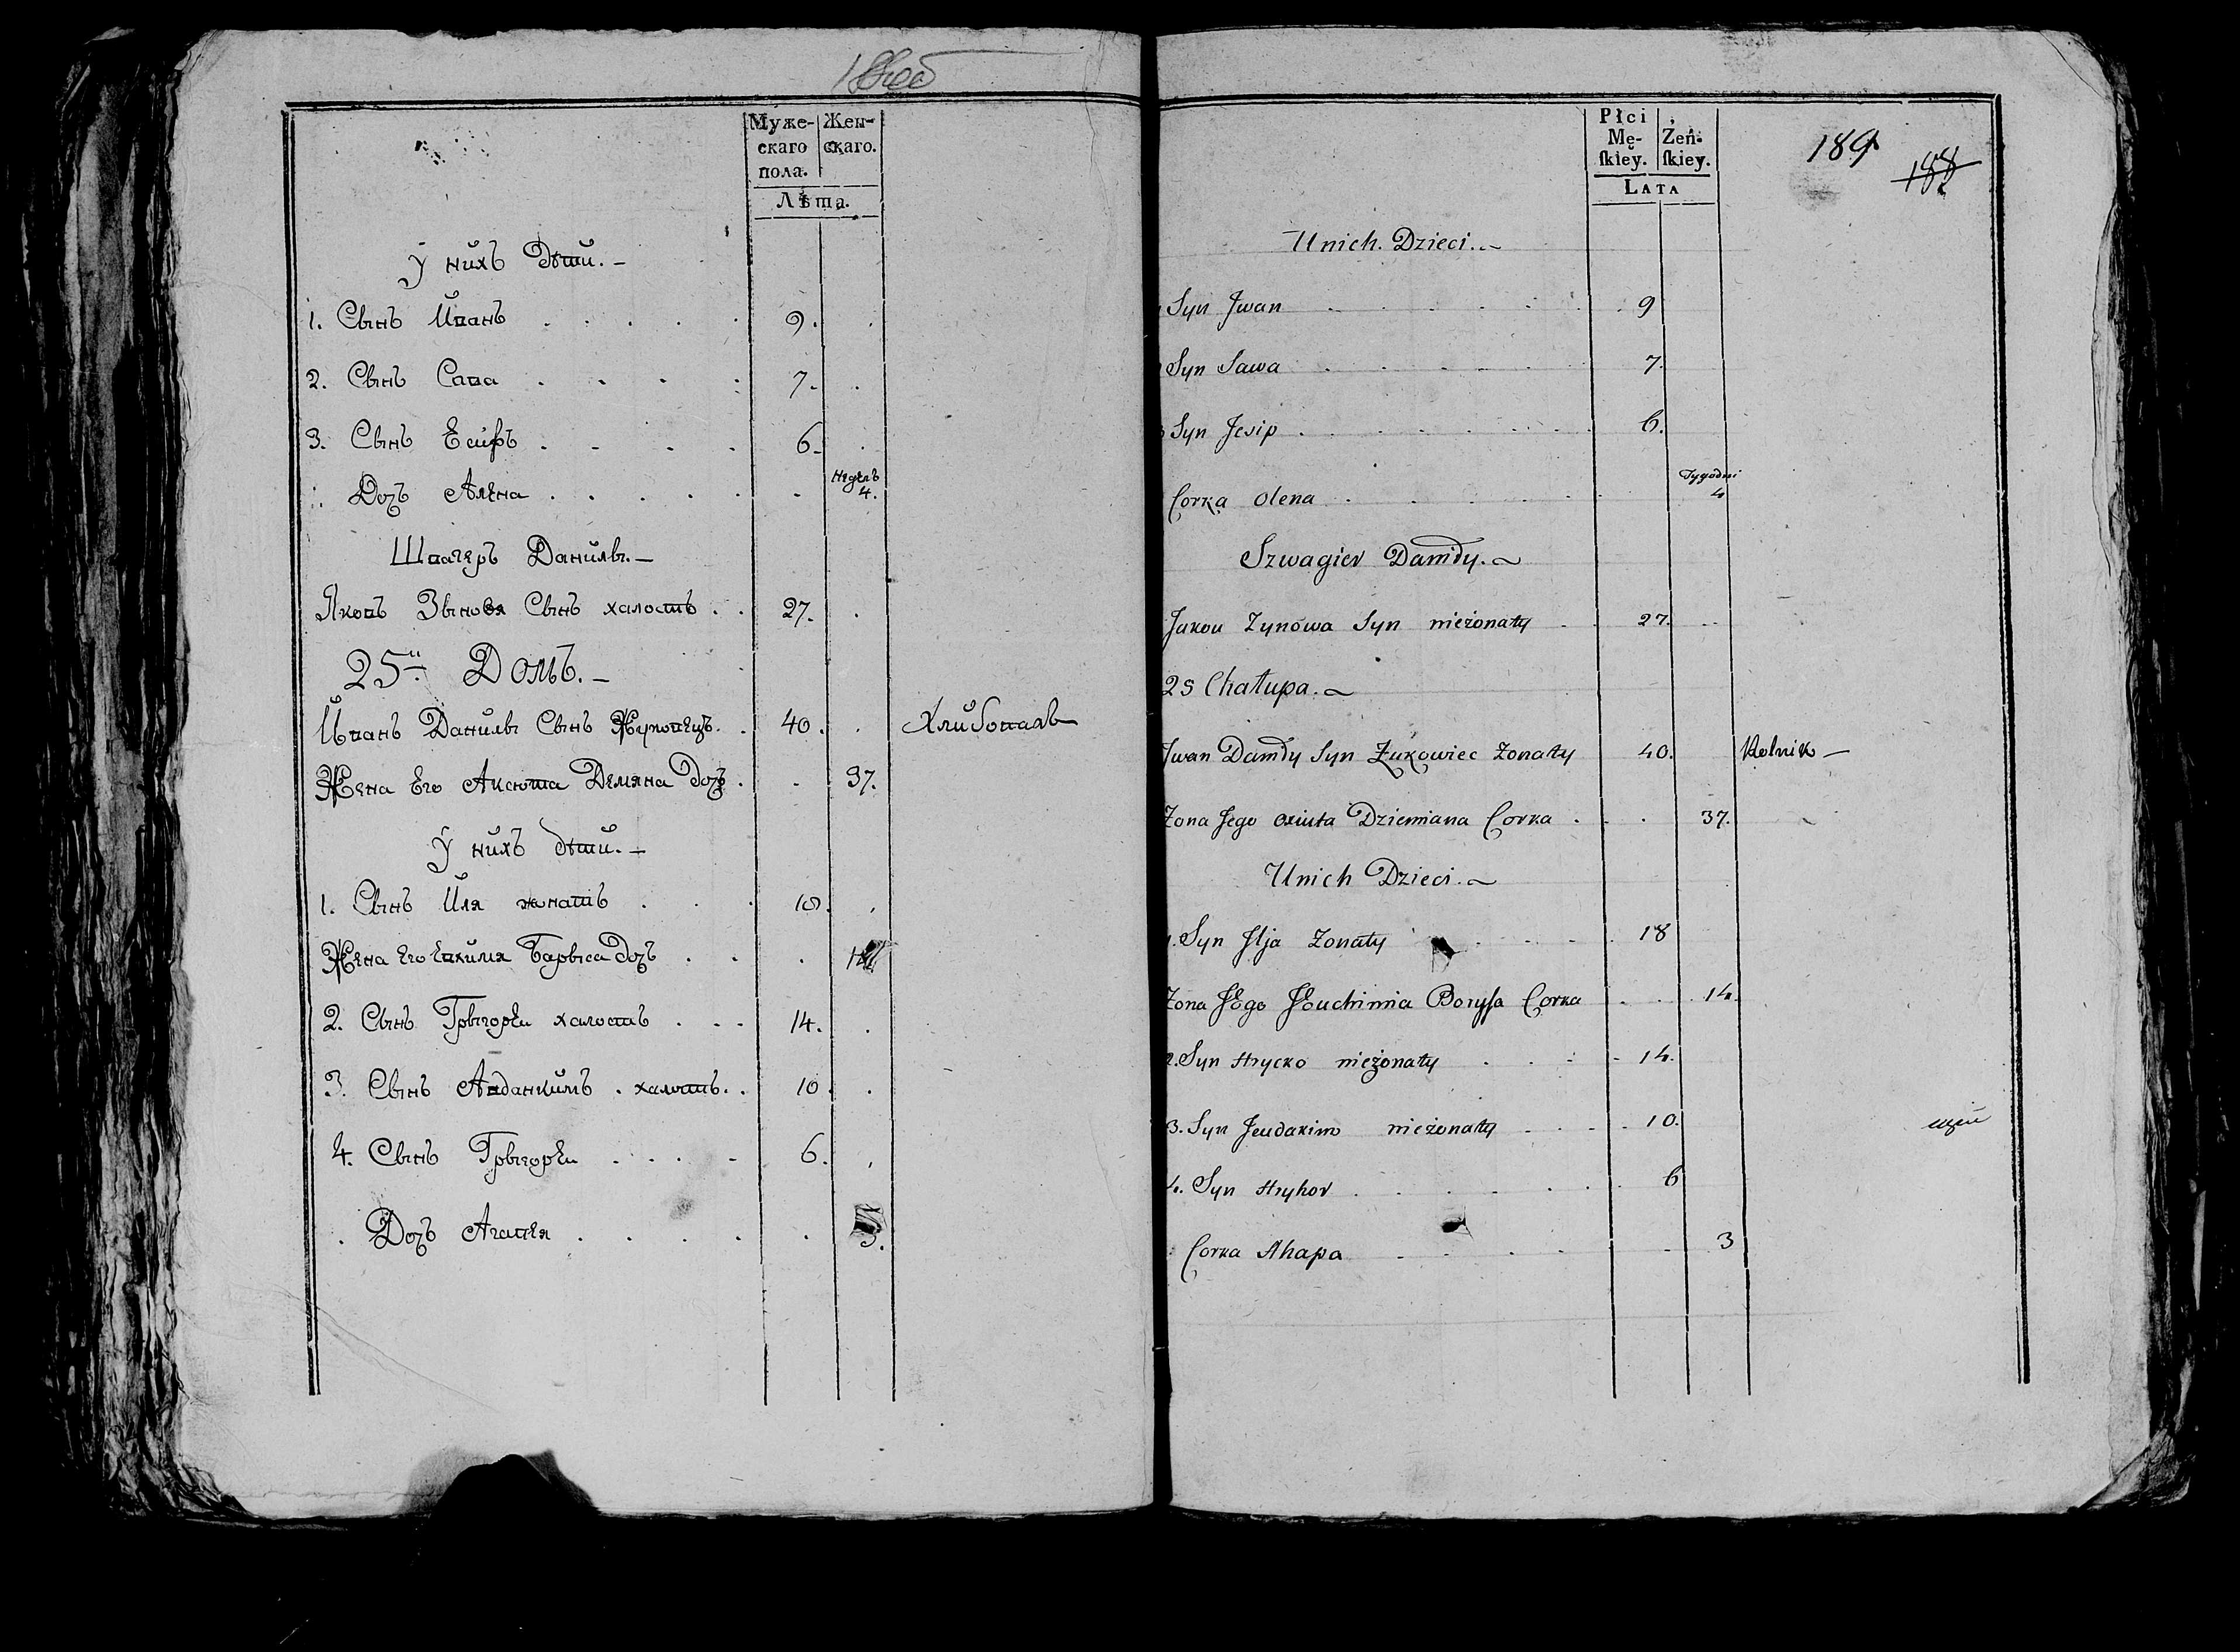 Муже-
скаго
пола.
Жен-
скаго.
Лѣта.
У нихъ Дѣти. -
1. Сынъ Иванъ 9.
2. Сынъ Сава 7.
3. Сынъ Есифъ 6.
Дочь Алена недель 4.
Швагеръ Данилы. -
Яковъ Зынова Сынъ халостъ 27.
25й Домъ. -
Иванъ Данилы Сынъ Жуковецъ 40. Хлибопахъ
Жена Его Аксюта Демяна Дочь 37.
У нихъ дѣти. -
1. Сынъ Иля жонатъ 18.
Жена Его Евхимя Барыса Дочь
2. Сынъ Грыгорей халостъ 14.
3. Сынъ Авданкимъ халостъ 10
4. Сынъ Грыгорей 6.
Дочь Агапея 3.
Płci
Mę-
ſkiey.
Żeń-
ſkiey.
LATA
189
188
Unich Dzieci. -
Syn Jwan 9
Syn Sawa 7.
Syn Jesip 6.
Corka Olena Tygodni 4
Szwagier Daniły.
Jakou Zynowa Syn nieżonaty 27.
25 Chałupa.
Jwan Daniły Syn Żukowiec Żonaty 40. Rolnik -
Żona Jego Oxiuta Dziemiana Corka 37.
Unich Dzieci.
1. Syn Jlja Żonaty 18
Żona JEgo JEuchimia Boryſa Corka 14.
2. Syn Hrycko nieżonaty 14.
3. Syn Jeudakim nieżonaty 10.
4. Syn Hryhor 6
Corka Ahapa 3